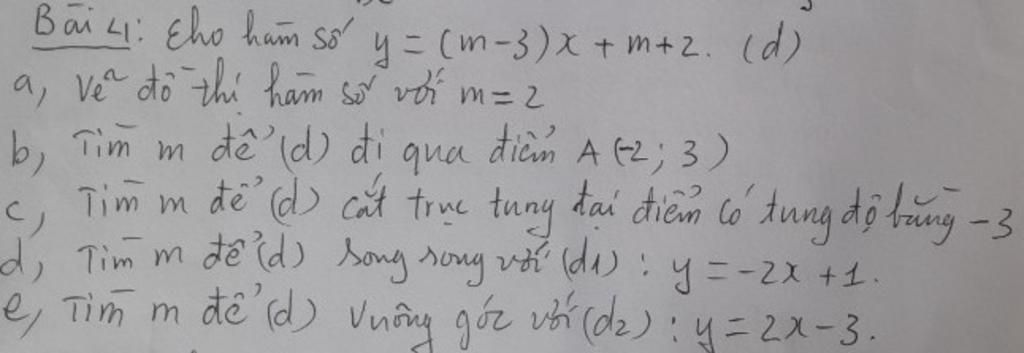 Bài 4: Cho hàm số y = (m-3)x + m+2. (d)
a, Vẽ đồ thị hàm số với m = 2
b, Tìm m để (d) đi qua điểm A (-2; 3)
c, Tìm m để (d) cắt trục tung tại điểm có tung độ bằng -3
d, Tìm m để (d) song song với (d1) : y = -2x +1.
e, Tìm m để (d) vuông góc với (d2) : y = 2x - 3.